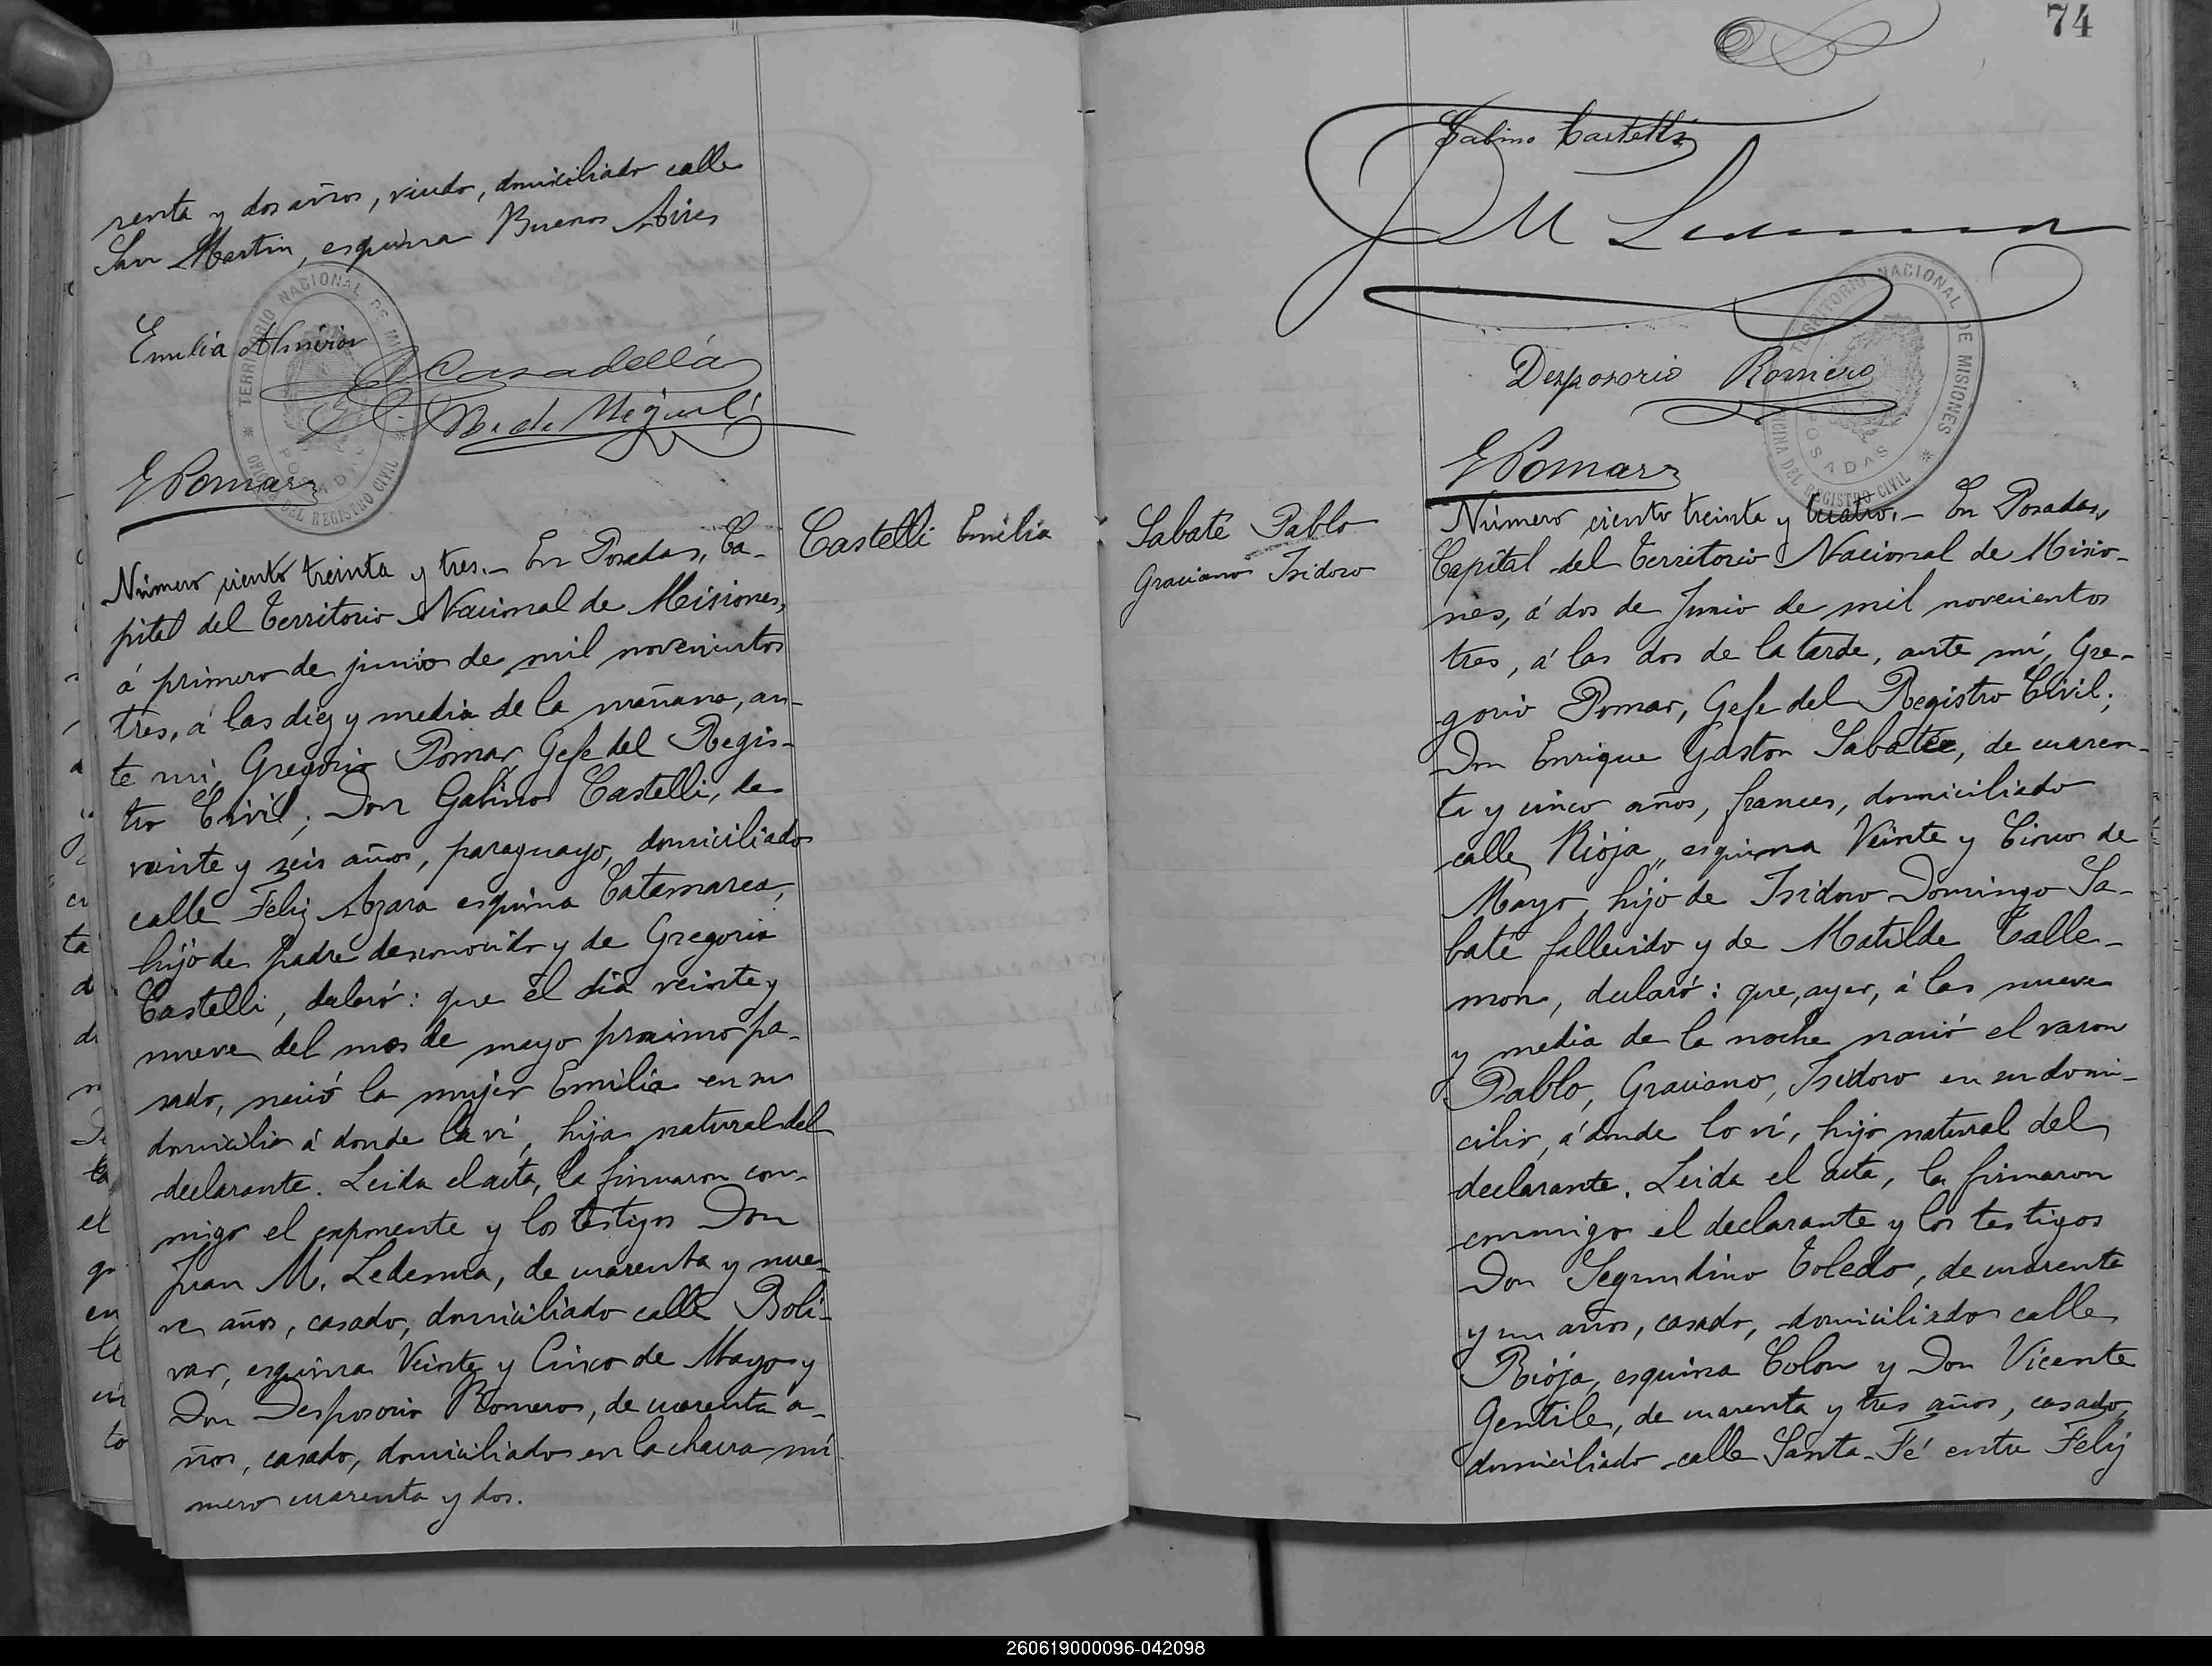 renta y dos años, viudo, domiciliado calle
San Martin, esquina Buenos Aires
TERRITORIO NACIONAL DE MISIONES
OFICINA DEL REGISTRO CIVIL
POSADAS
Emilia
Casadellá
M. de Miguel
GPomar
Castelli Emilia
Número ciento treinta y tres.- En Posadas, Ca-
pital del Territorio Nacional de Misiones,
á primero de junio de mil novecientos
tres, á las diez y media de la mañana, an-
te mi, Gregorio Pomar, Gefe del Regis-
tro Civil; Don Gabino Castelli, de
veinte y seis años, paraguayo, domiciliado
calle Feliz Azara esquina Catamarca,
hijo de padre desconocido y de Gregoria
Castelli, declaró: que el dia veinte y
nueve del mes de mayo proximo pa-
sado, nació la mujer Emilia en su
domicilio á donde la ví, hija natural del
declarante. Leida el acta, la firmaron con-
migo el exponente y los testigos Don
Juan M. Ledesma, de cuarenta y nue-
ve años, casado, domiciliado calle Boli-
var, esquina Veinte y Cinco de Mayo y
Don Desposorio Romero, de cuarenta a-
ños, casado, domiciliado en la chacra nú
mero cuarenta y dos.
74
Gabino Castelli
J M Ledesma
TERRITORIO NACIONAL DE MISIONES
OFICINA DEL REGISTRO CIVIL
POSADAS
Desposorio Romero
GPomar
Sabaté Pablo
Graciano Isidoro
Número ciento treinta y cuatro.- En Posadas,
Capital del Territorio Nacional de Misio-
nes, á dos de Junio de mil novecientos
tres, á las dos de la tarde, ante mí, Gre-
gorio Pomar, Gefe del Registro Civil;
Don Enrique Gaston Sabaté, de cuaren-
ta y cinco años, frances, domiciliado
calle Rioja, esquina Veinte y Cinco de
Mayo, hijo de Isidoro Domingo Sa-
baté fallecido y de Matilde Calle-
mon, declaró: que, ayer, á las nueve
y media de la noche nació el varon
Pablo, Graciano, Isidoro en su domi-
cilio, á donde lo ví, hijo natural del
declarante. Leida el acta, la firmaron
conmigo el declarante y los testigos
Don Segundino Toledo, de cuarenta
y un años, casado, domiciliado calle
Rioja, esquina Colon y Don Vicente
Gentile, de cuarenta y tres años, casado,
domiciliado calle Santa-Fé entre Feliz
260619000096-042098